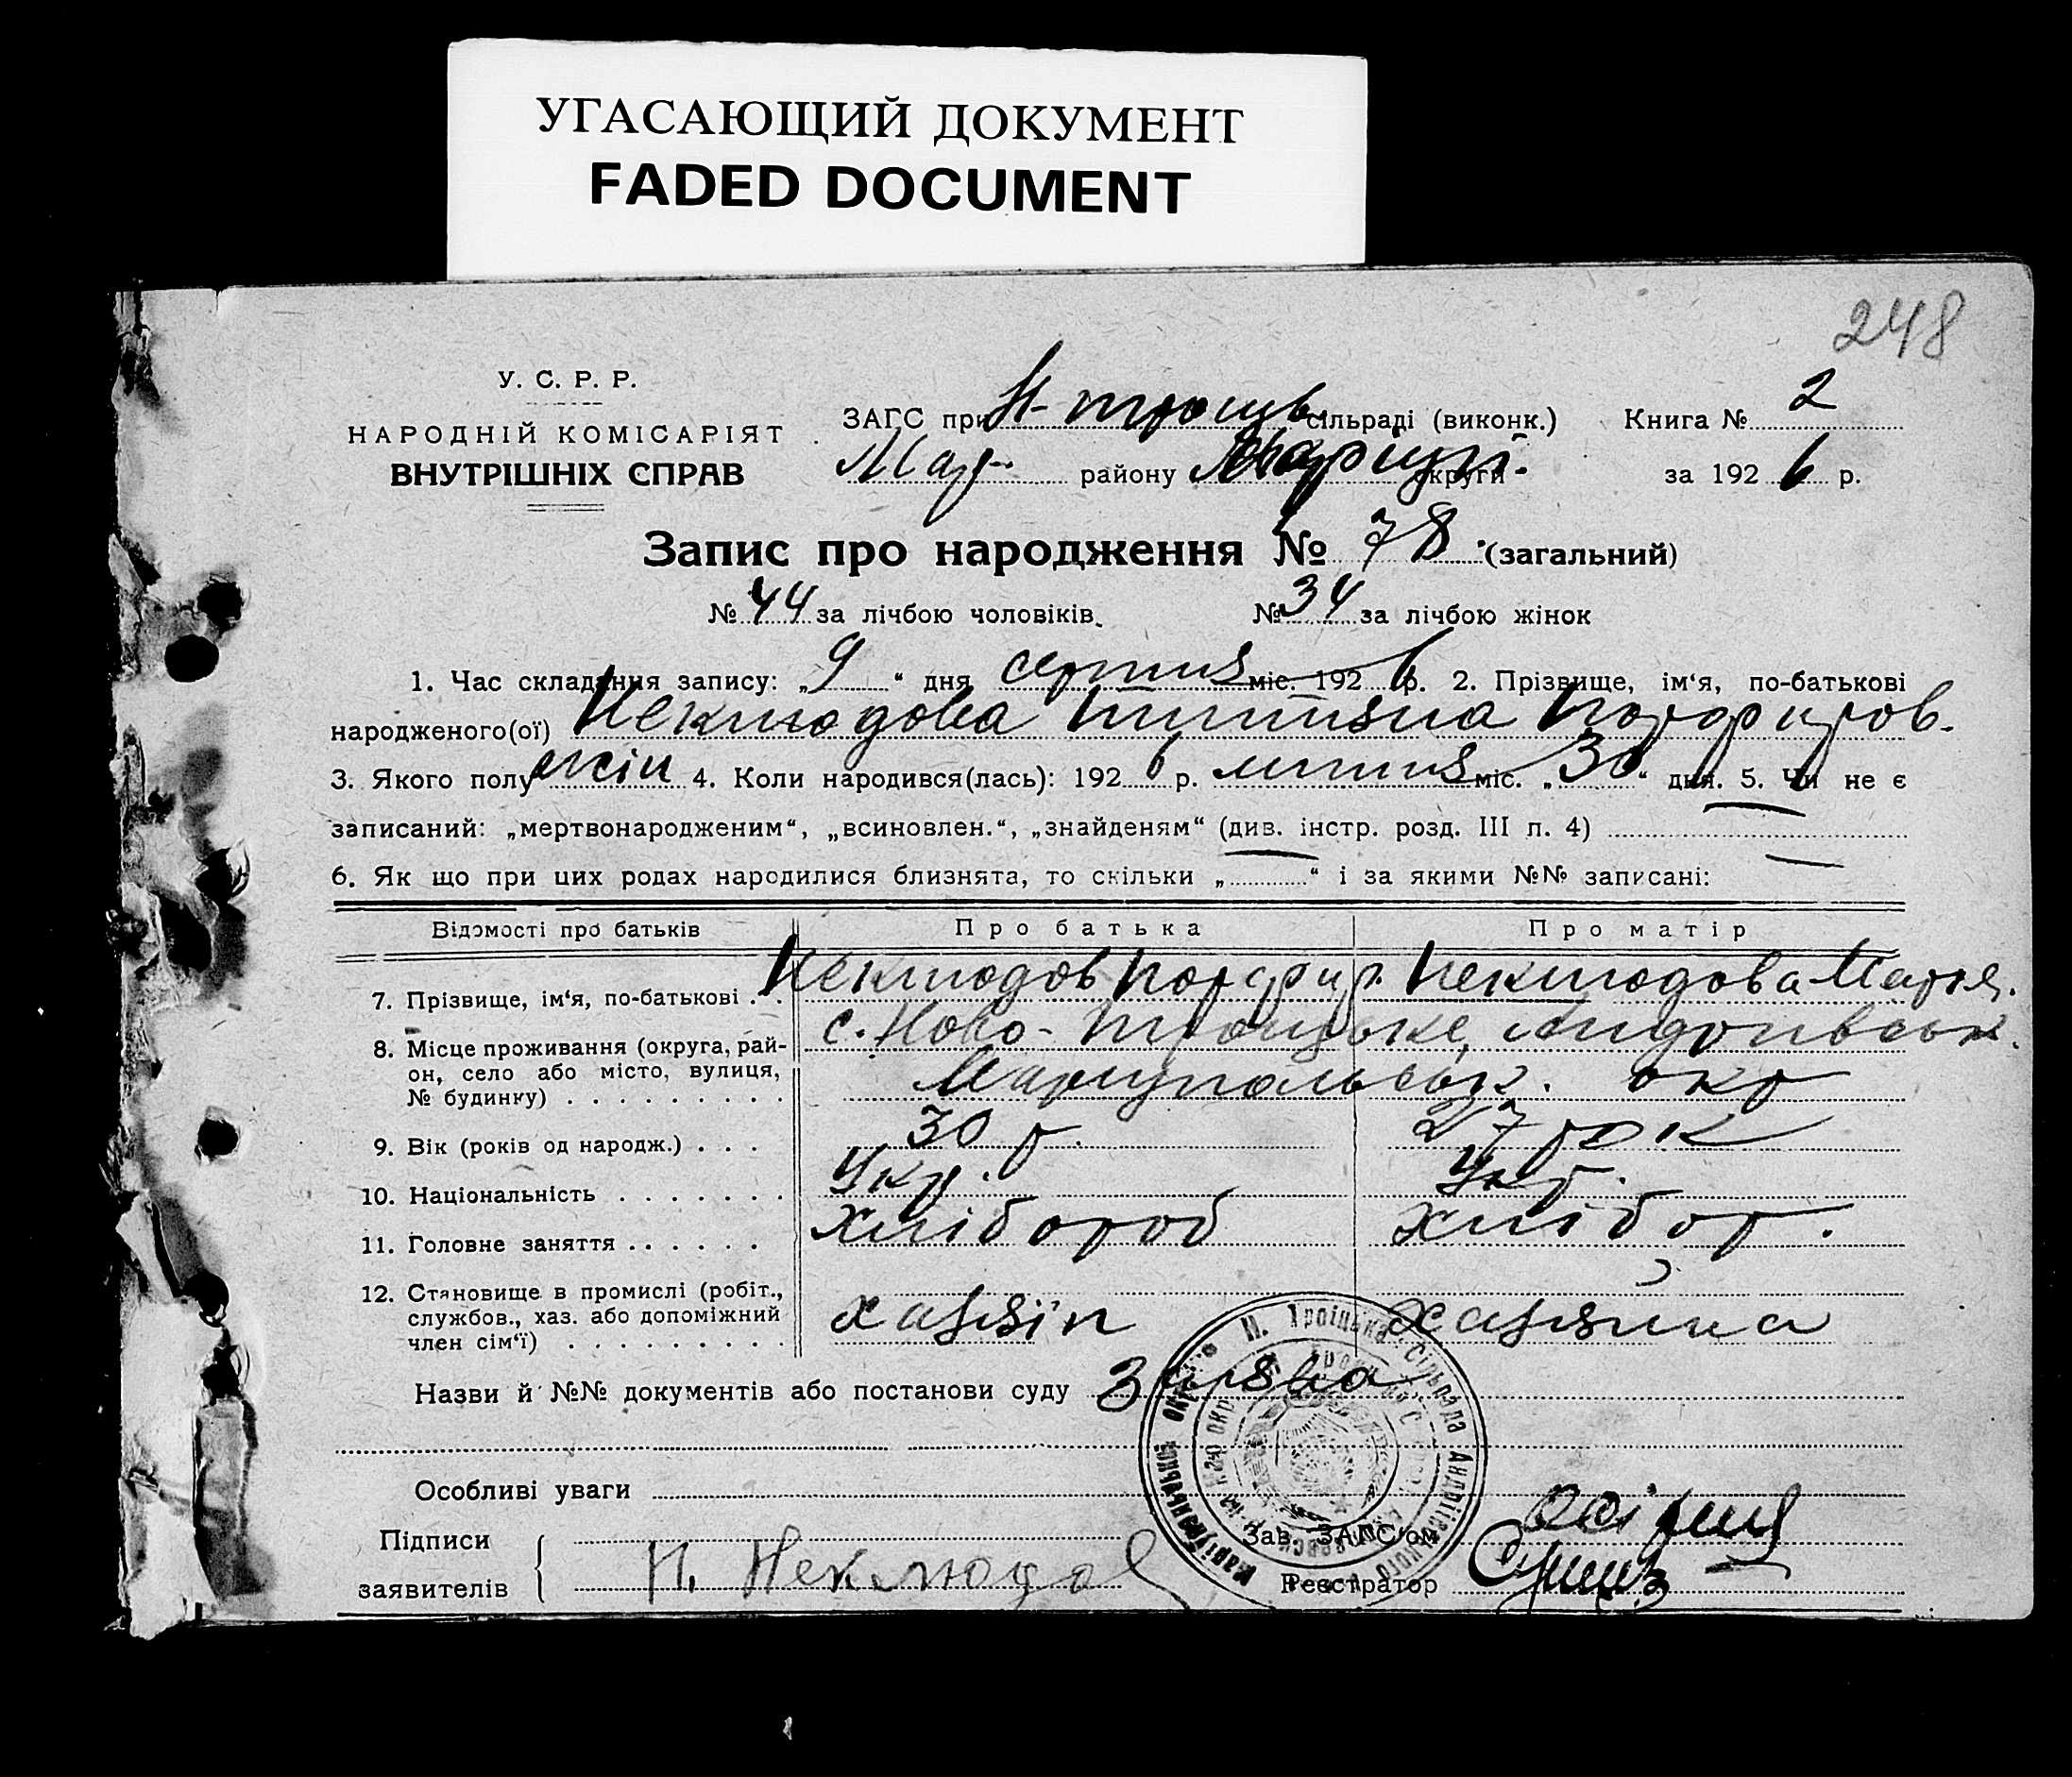 УГАСАЮЩИЙ ДОКУМЕНТ
FADED DOCUMENT
248
У. С. Р. Р.
НАРОДНІЙ КОМІСАРІЯТ
ВНУТРІШНІХ СПРАВ
ЗАГС при Н-троць. сільраді (виконк.)
Мар. району Маріуп. округи
Книга № 2
за 1926 р.
Запис про народження № 78 (загальний)
№ 44 за лічбою чоловіків. № 34 за лічбою жінок
1. Час складання запису: „9“ дня серпня міс. 1926 р. 2. Прізвище, ім‘я, по-батькові
народженого(ої) Неклюдова Порфиров.
3. Якого полу жін 4. Коли народився(лась): 1926 р. липня міс. „30“ дня. 5. Чи не є
записаний: „мертвонародженим“, „всиновлен.“, „знайденям“ (див. інстр. розд. III п. 4)
6. Як що при цих родах народилися близнята, то скільки „ “ і за якими №№ записані:
Відомості про батьків Про батька Про матір
7. Прізвище, ім‘я, по-батькові . . Неклюдов Порфир. Неклюдова Марія.
8. Місце проживання (округа, рай-
он, село або місто, вулиця,
№ будинку)
с. Ново-Троицьке,
Маріупольськ. окр
9. Вік (років од народж.) . . . 30 р. 27 рок
10. Національність . . . . . . . Укр. Укр.
11. Головне заняття . . . . . . Хлібороб Хлібор.
12. Становище в промислі (робіт.,
службов., хаз. або допоміжний
член сім‘ї) . . . . . . . . .
хазяїн хазяйка
Назви й №№ документів або постанови суду Заява
Особливі уваги
Підписи
заявителів
П. Неклюдов
Зав. ЗАГС‘ом
Реєстратор
Н. Троіцька Сільрада
Маріупольської округи